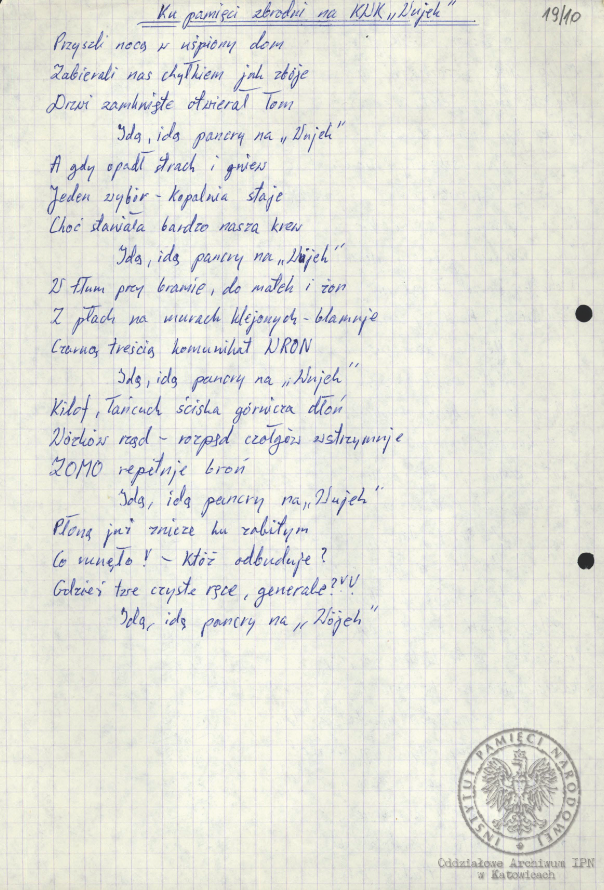 Ku pamięci zbrodni na KWK „Wujek”
19/10
Przyszli nocą w uśpiony dom
Zabierali nas chyłkiem jak zbóje
Drzwi zamknięte otwierał łom
Idą, idą pancry na „Wujek”
A gdy opadł strach i gniew
Jeden wybór - Kopalnia staje
Choć staniała bardzo nasza krew
Idą, idą pancry na „Wujek”
W tłum przy bramie, do matek i żon
Z płach na murach klejonych - blamuje
Czarną treścią komunikat WRON
Idą, idą pancry na „Wujek”
Kilof, łańcuch ściska górnicza dłoń
Wózków rząd - rozpęd czołgów wstrzymuje
ZOMO repetuje broń
Idą, idą pancry na „Wujek”
Płoną już znicze ku zabitym
Co runęło? - Któż odbuduje?
Gdzieś twe czyste ręce, generale?!!
Idą, idą pancry na „Wójek”
INSTYTUT PAMIĘCI NARODOWEJ
Oddziałowe Archiwum IPN
w Katowicach